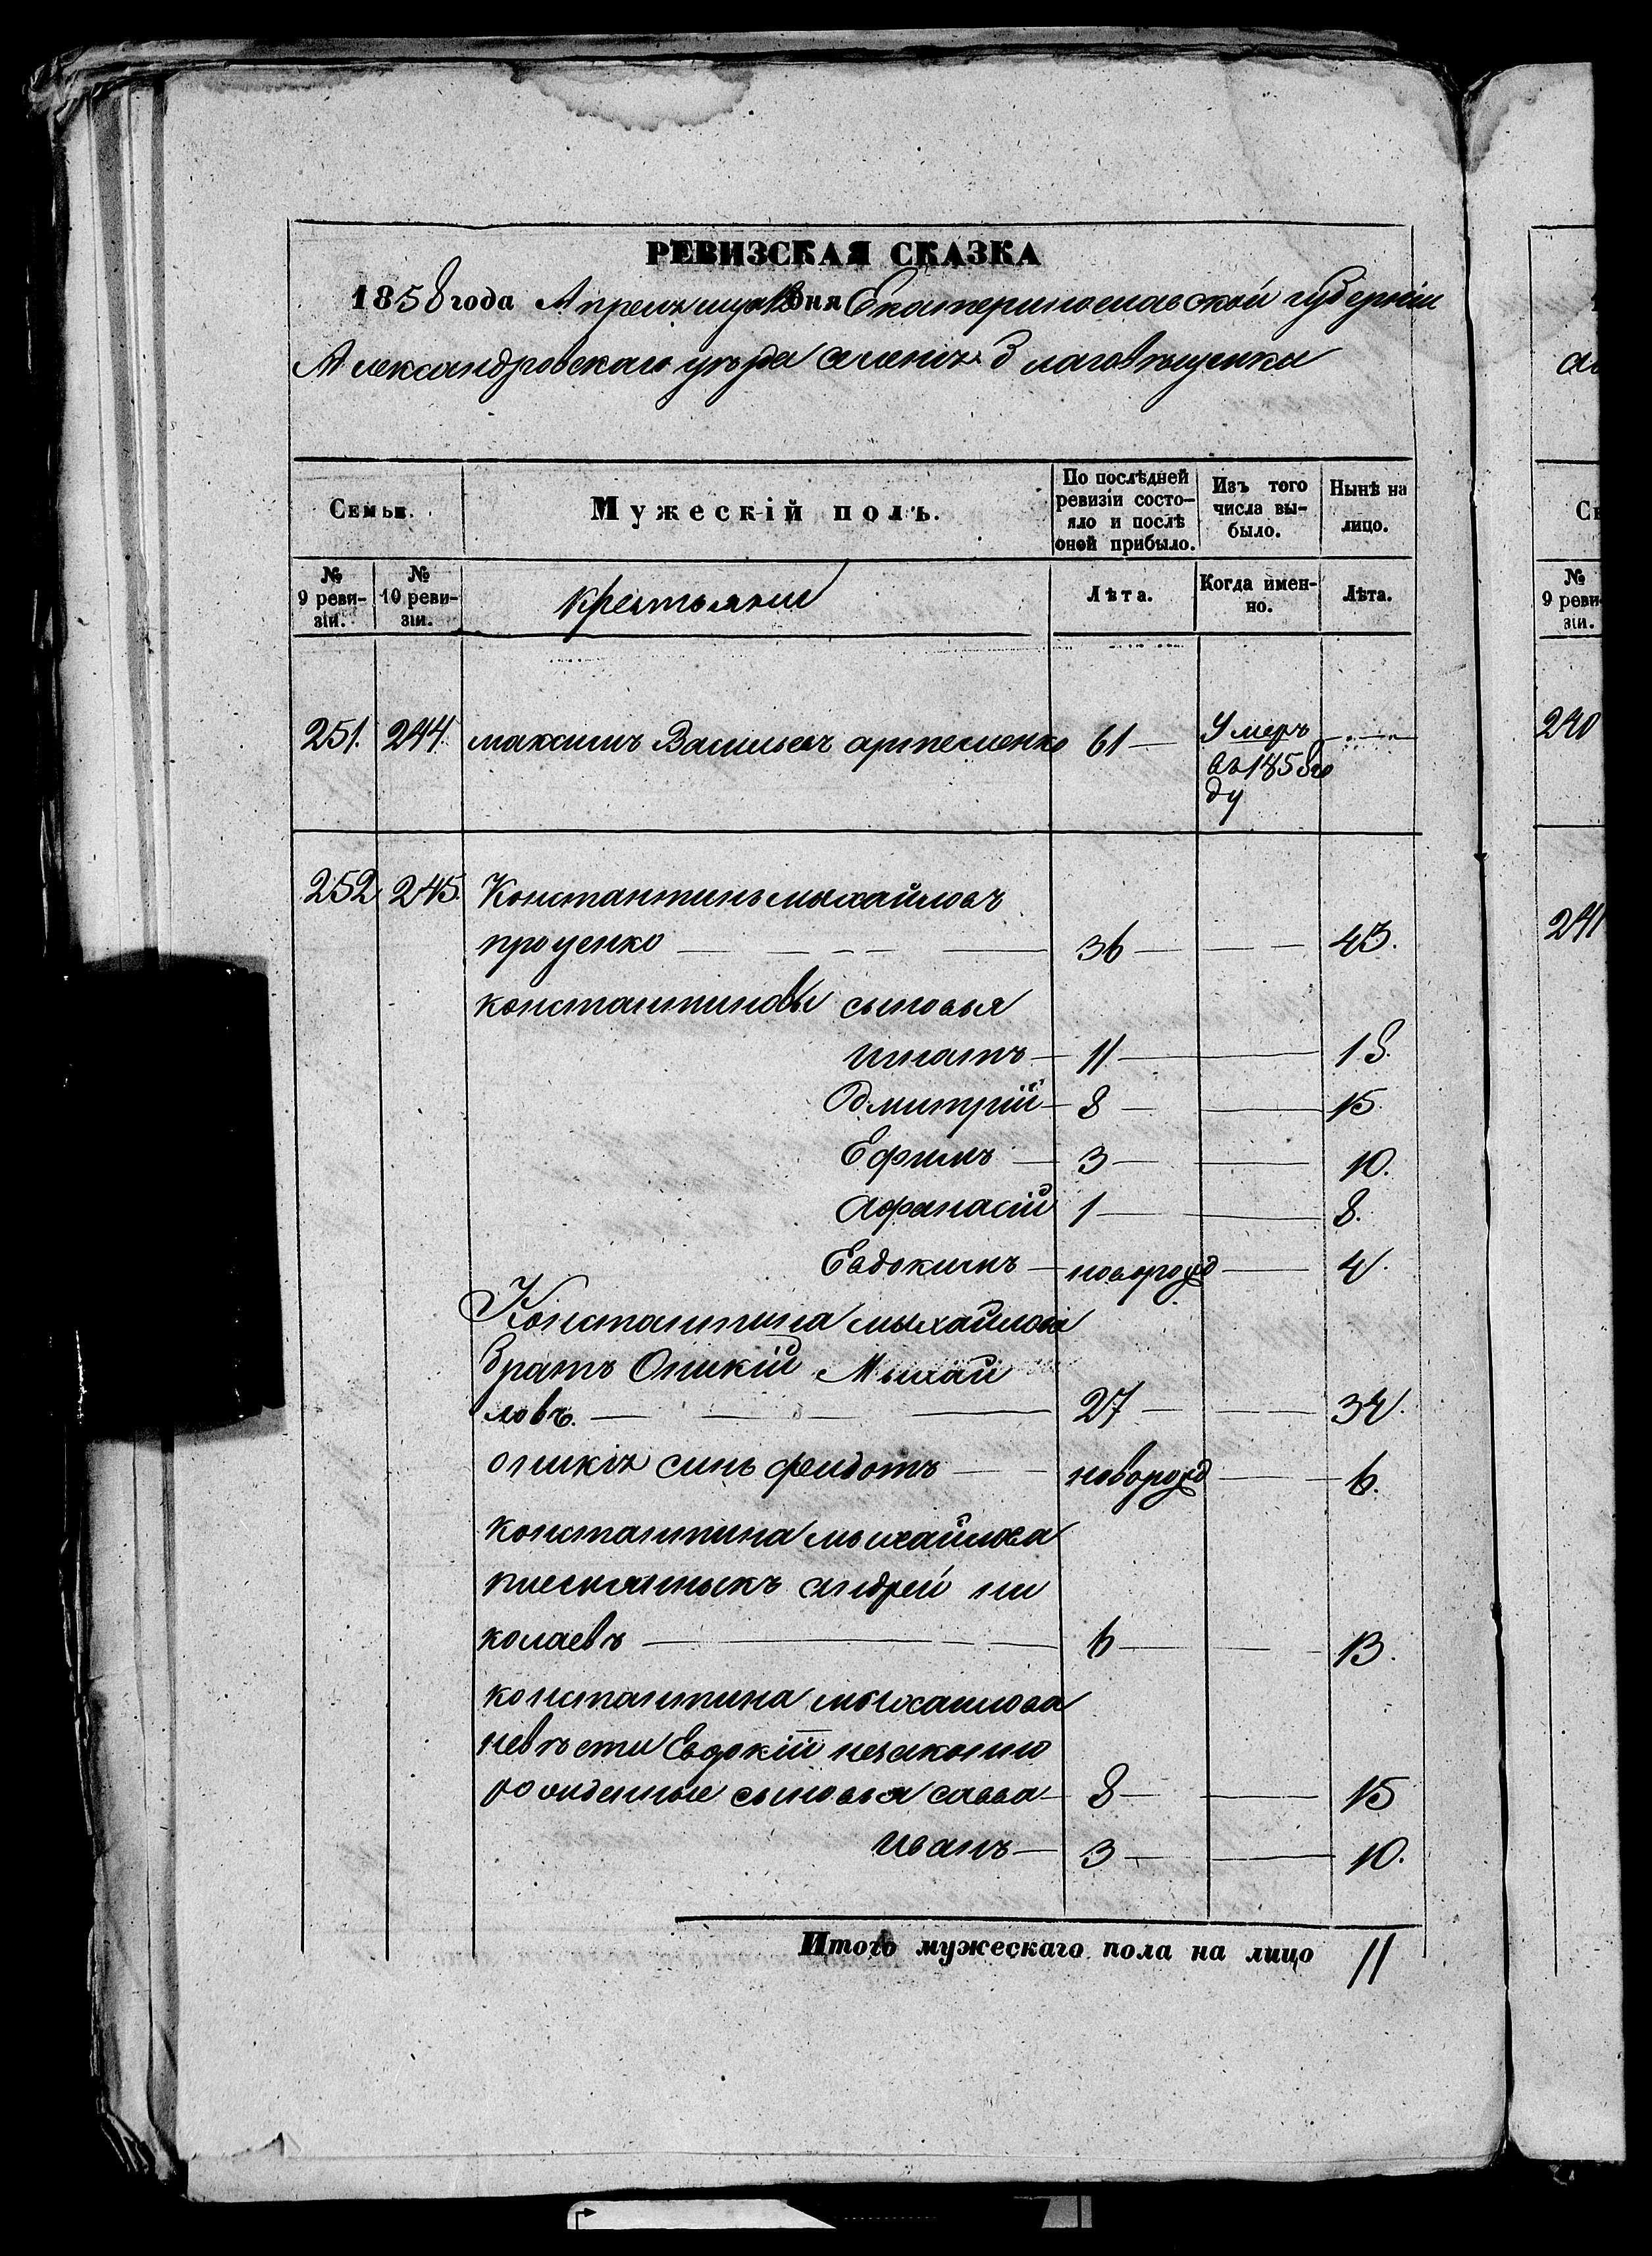 РЕВИЗСКАЯ СКАЗКА
1858 года Апреля дня Екатеринославской губернiи
Александровскаго уѣзда селенія Благовѣщенки
Семьи.
Мужескій полъ.
По послѣдней ревизіи состо-яло и послѣ оной прибыло.
Изъ того числа вы-было.
Нынѣ на лицо.
№ 9 реви-зіи.
№ 10 реви-зіи.
крестьяне
Лѣта.
Когда имен-но.
Лѣта.
251. 244. максимъ Васильевъ артеменко 61 — Умеръ
въ 1858 го
ду
252 245. Константинъ мыхайловъ
проценко — 36 — — 43.
константиновы сыновья
игнатъ — 11 — 18.
Дмитрiй — 8 — 15.
Ефимъ — 3 — 10.
Афанасiй 1 — 8.
Евдокимъ — новорожд — 4.
Константина мыхайлова
братъ Оникiй Мыхай
ловъ. — 27 — — 34.
оникiя синъ федотъ — новорожд — 6.
константина мыхайлова
племянныкъ андрей ни
колаевъ — 6 — — 13.
константина мыхайлова
невѣсти Евдокiи незаконно
рожденные сыновья савва — 8 — 15
иванъ — 3 — 10.
Итого мужескаго пола на лицо 11
№ 9 реви
зіи.
240
241